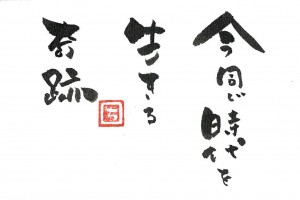 今同じ時代を
生きる
奇跡